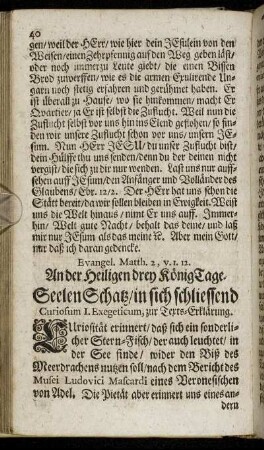 40
gen/ weil der HErr/ wie hier dein JEsulein von den
Weisen/ einen Zehrpfennig auf den Weg geben läst/
oder noch immerzu Leute giebt/ die einen Bissen
Brod zuwerffen/ wie es die armen Exulirende Un-
garn noch stetig erfahren und gerühmet haben. Er
ist überall zu Hause/ wo sie hinkommen/ macht Er
Qvartier/ ja Er ist selbst die Zuflucht. Weil nun die
Zuflucht selbst vor uns hin ins Elend geflohen/ so fin-
den wir unsere Zuflucht schon vor uns/ unsern JE-
sum. Nun HERR JESU/ du unser Zuflucht bist/
dein Hülffe thu uns senden/ denn du der deinen nicht
vergist/ die sich zu dir nur wenden. Last uns nur auff-
sehen auff JEsum/ den Anfänger und Volländer des
Glaubens/ Ebr. 12/2. Der HErr hat uns schon die
Stätt bereit/ da wir sollen bleiben in Ewigkeit. Weist
uns die Welt hinaus/ nimt Er uns auff. Immer-
hin/ Welt gute Nacht/ behalt das deine/ und laß
mir nur JEsum als das meine ꝛc. Aber mein Gott/
nur daß ich daran gedencke.
Evangel. Matth. 2, v. 1. 12.
An der Heiligen drey König Tage/
Seelen Schatz/ in sich schliessend
Curiosum I. Exegeticum, zur Texts-Erklärung.
CUriosität erinnert/ daß sich ein sonderli-
cher Stern-Fisch/ der auch leuchtet/ in
der See finde/ wider den Biß des
Meerdrachens nutzen soll/ nach dem Bericht des
Musei Ludovici Mascardi eines Veronesischen
von Adel. Die Pietät aber erinnert uns eines an-
dern